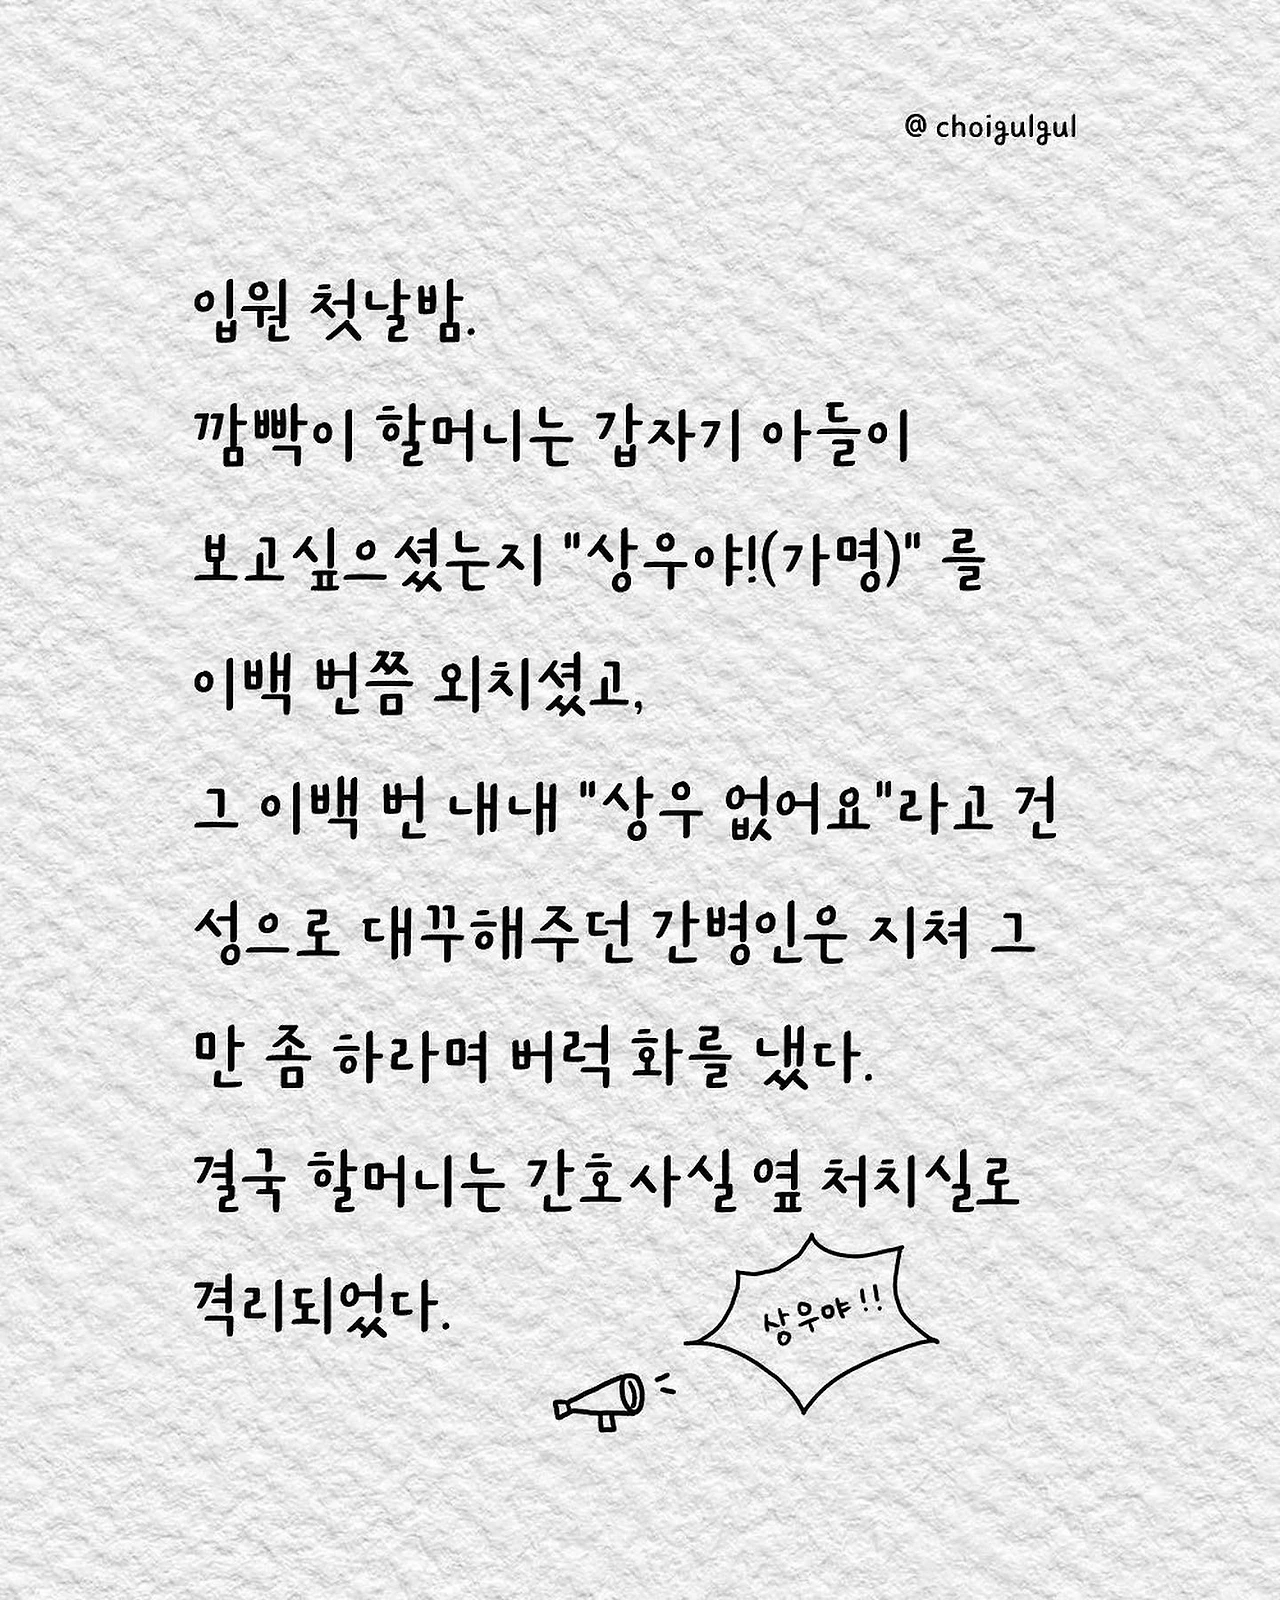 @ choigulgul
입원 첫날밤.
깜빡이 할머니는 갑자기 아들이
보고싶으셨는지 "상우야!(가명)" 를
이백 번쯤 외치셨고,
그 이백 번 내내 "상우 없어요"라고 건
성으로 대꾸해주던 간병인은 지쳐 그
만 좀 하라며 버럭 화를 냈다.
결국 할머니는 간호사실 옆 처치실로
격리되었다.
상우야!!